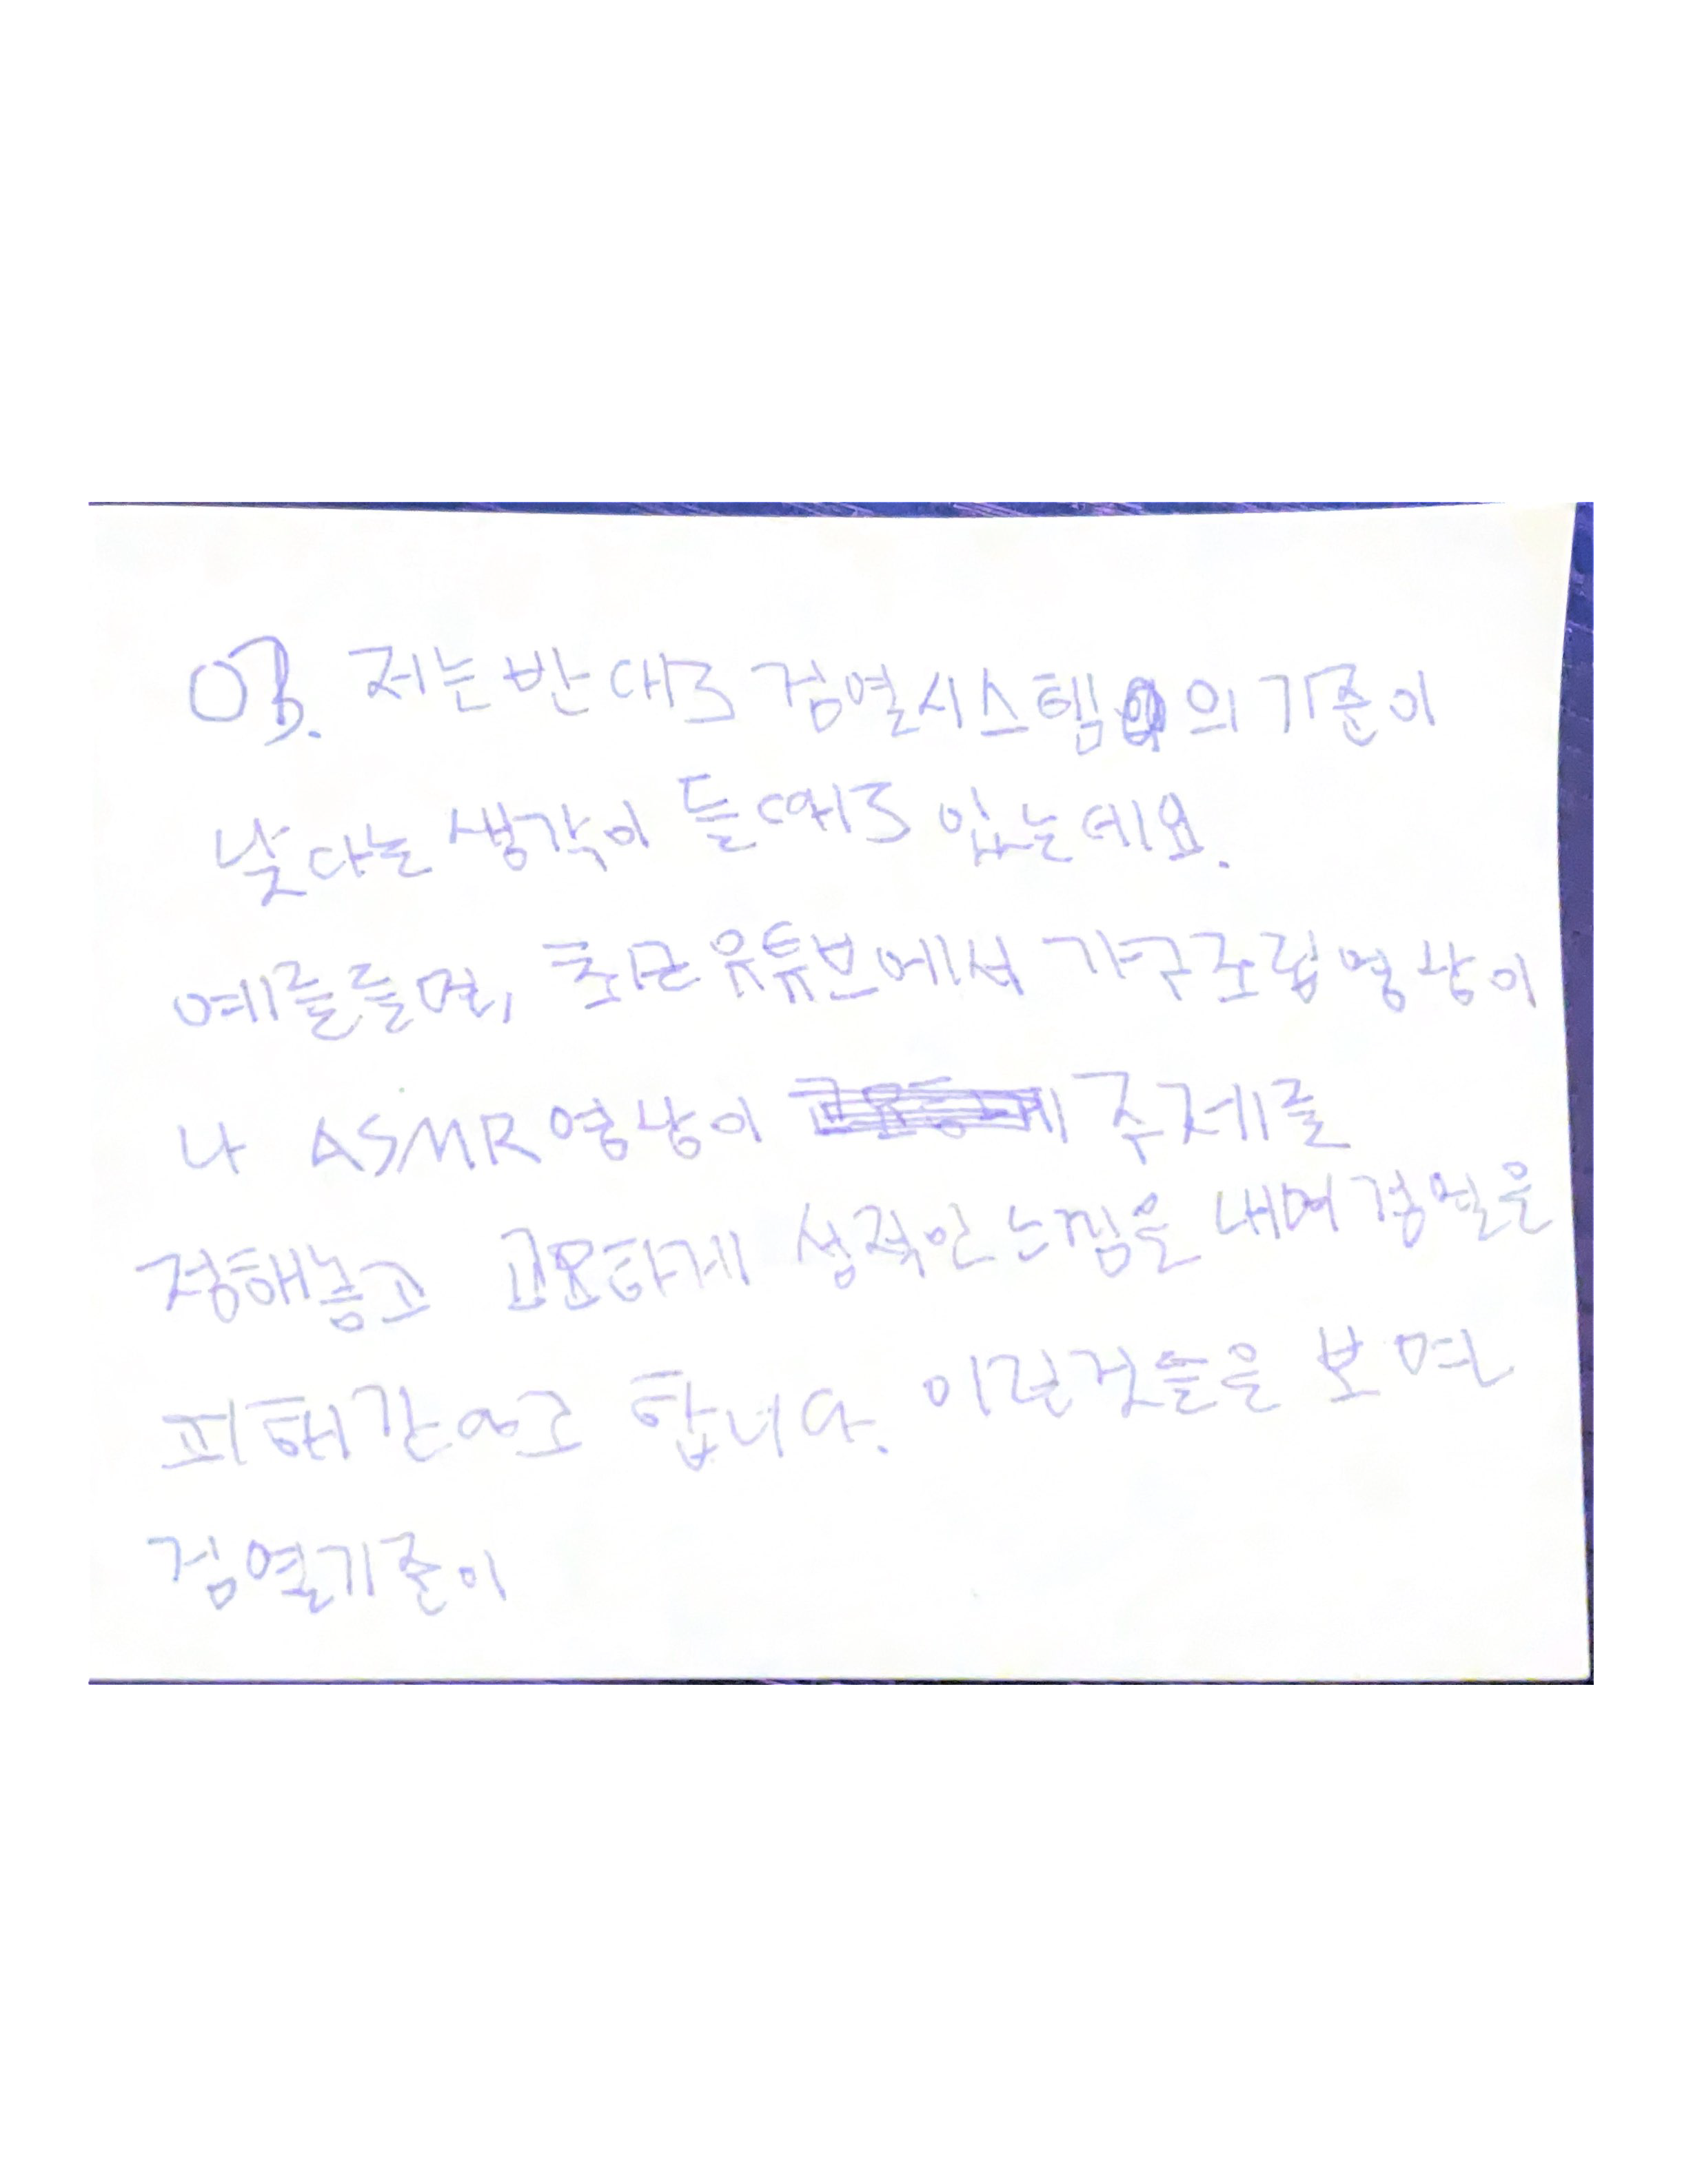 03. 저는 반대로 검열시스템의 기준이
낮다는 생각이 들때도 있는데요.
예를들면, 최근 유튜브에서 가구조립영상이
나 ASMR 영상이 주제를
정해놓고 교묘하게 성적인 느낌을 내며 검열을
피해간다고 합니다. 이런것들을 보면
검열기준이